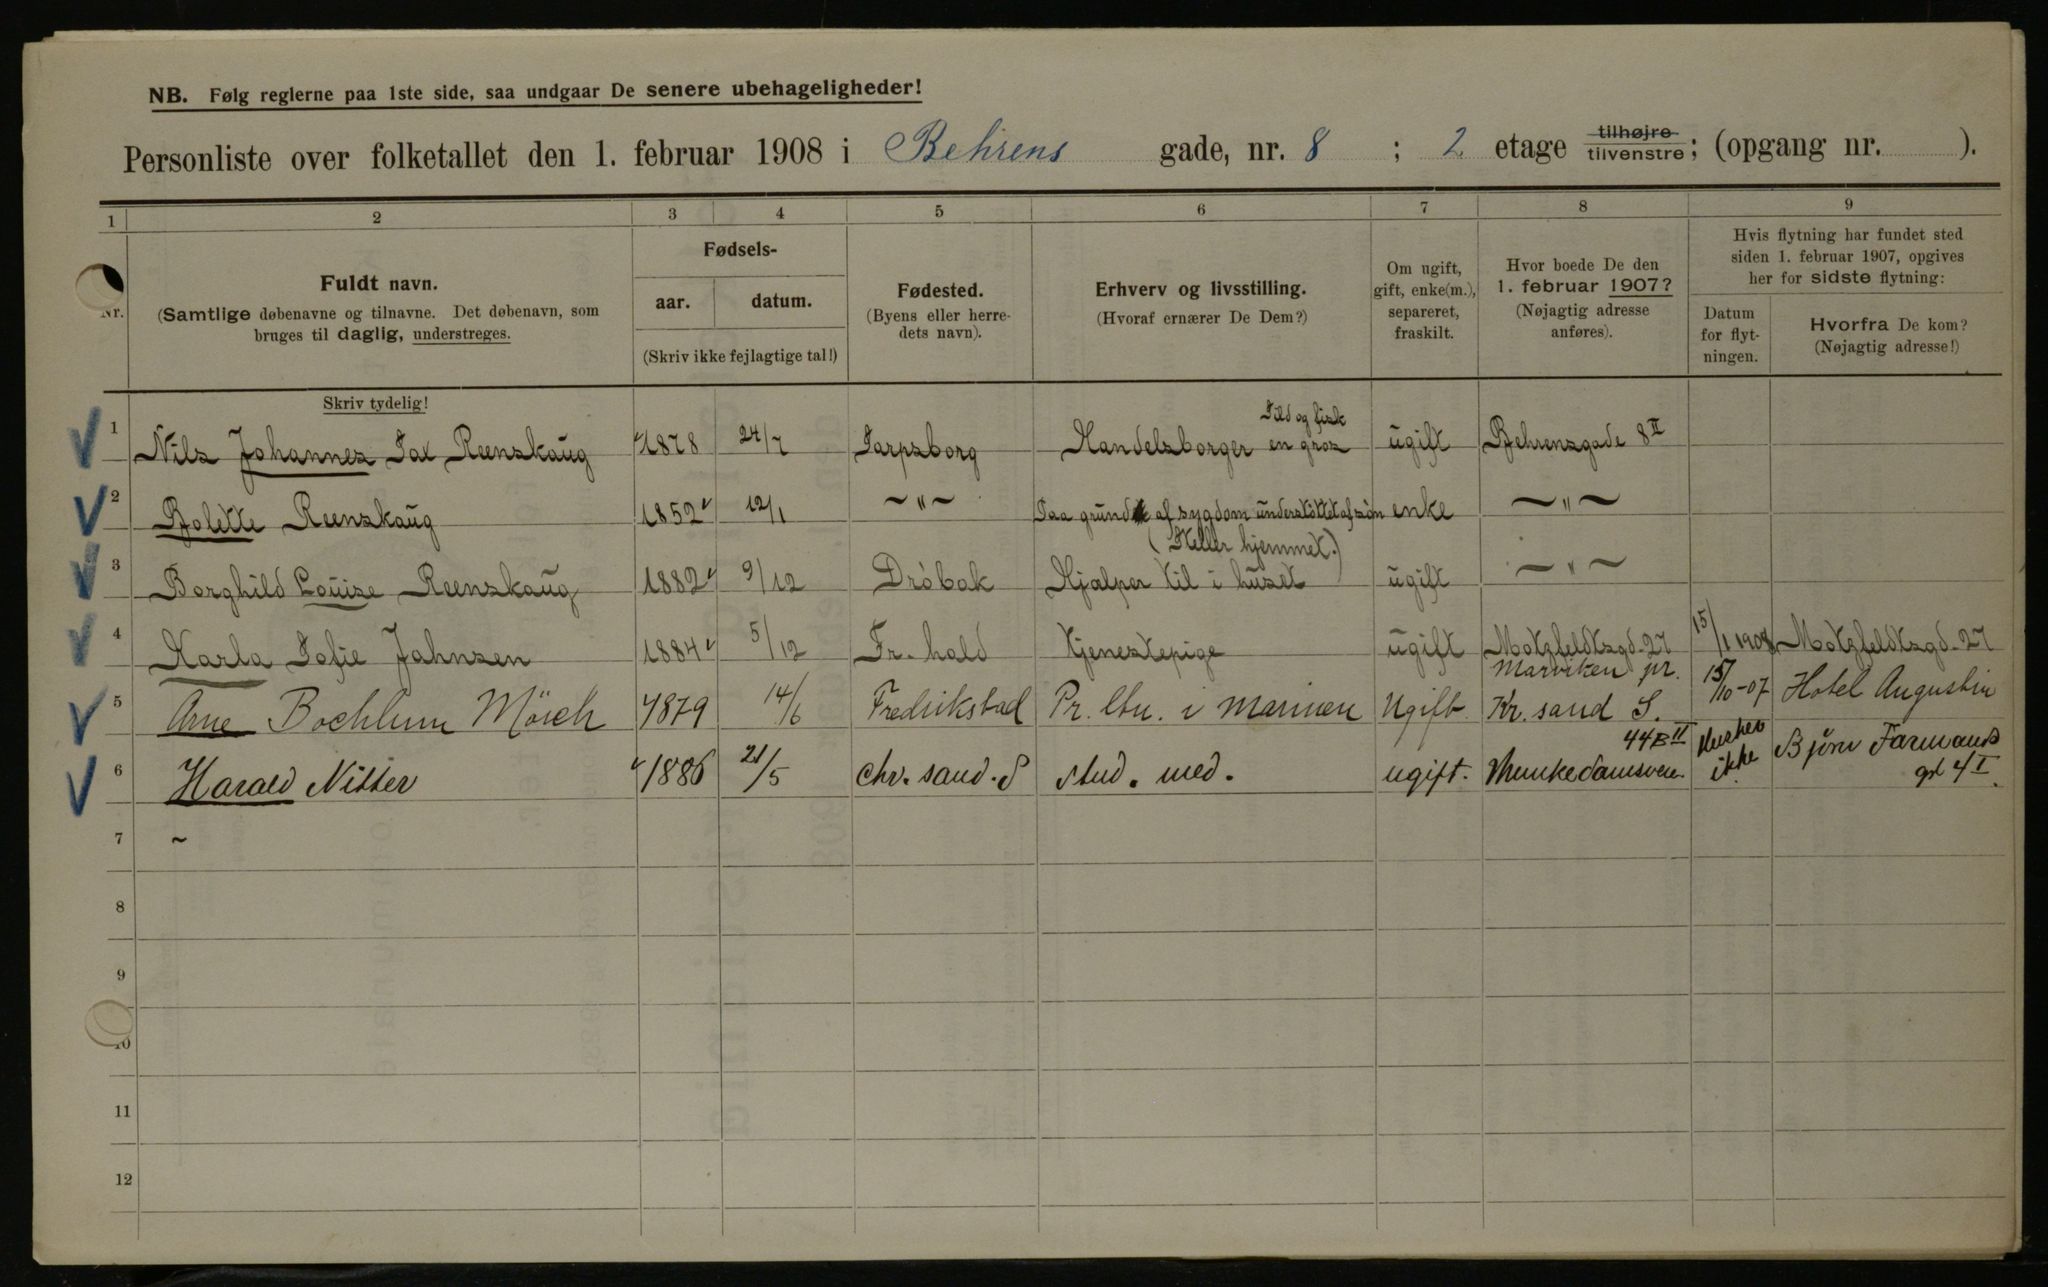 NB. Følg reglerne paa 1ste side, saa undgaar De senere ubehageligheder!
Personliste over folketallet den 1. februar 1908 i Behrens gade, nr. 8 ; 2 etage tilhøjre tilvenstre; (opgang nr. ).
1 2 3 4 5 6 7 8 9
Nr.
Fuldt navn.
(Samtlige døbenavne og tilnavne. Det døbenavn, som
bruges til daglig, understreges.
Fødsels-
aar. datum.
(Skriv ikke fejlagtige tal!)
Fødested.
(Byens eller herre-
dets navn).
Erhverv og livsstilling.
(Hvoraf ernærer De Dem?)
Om ugift,
gift, enke(m.),
separeret,
fraskilt.
Hvor boede De den
1. februar 1907?
(Nøjagtig adresse
anføres).
Hvis flytning har fundet sted
siden 1. februar 1907, opgives
her for sidste flytning:
Datum
for flyt-
ningen.
Hvorfra De kom?
(Nøjagtig adresse!)
Skriv tydelig!
1 Nils Johannes Sax Reenskaug 1878 24/7 Sarpsborg Handelsborger Sild og fisk en gros ugift Behrensgade 8 II
2 Bolette Reenskaug 1852 12/1 —"— Paa grund af sygdom understöttet af sön enke —"—
(Steller hjemmet.)
3 Borghild Louise Reenskaug 1882 9/12 Dröbak Hjælper til i huset ugift —"—
4 Karla Sofie Jahnsen 1884 5/12 Fr.hald tjenestepige ugift Motzfeldtsgd. 27 15/1 1908 Motzfeldtsgd. 27
5 Arne Bochlum Mörch 1879 14/6 Fredrikstad Pr. ltn. i Marinen Ugift Marviken pr. Kr.sand S. 15/10-07 Hotel Augustin
6 Harald Nitter 1886 21/5 Chr.sand.S stud. med. ugift. Munkedamsveien 44B II Husker ikke Bjørn Farmands gd 4 I.
7 ~
8
9
10
11
12